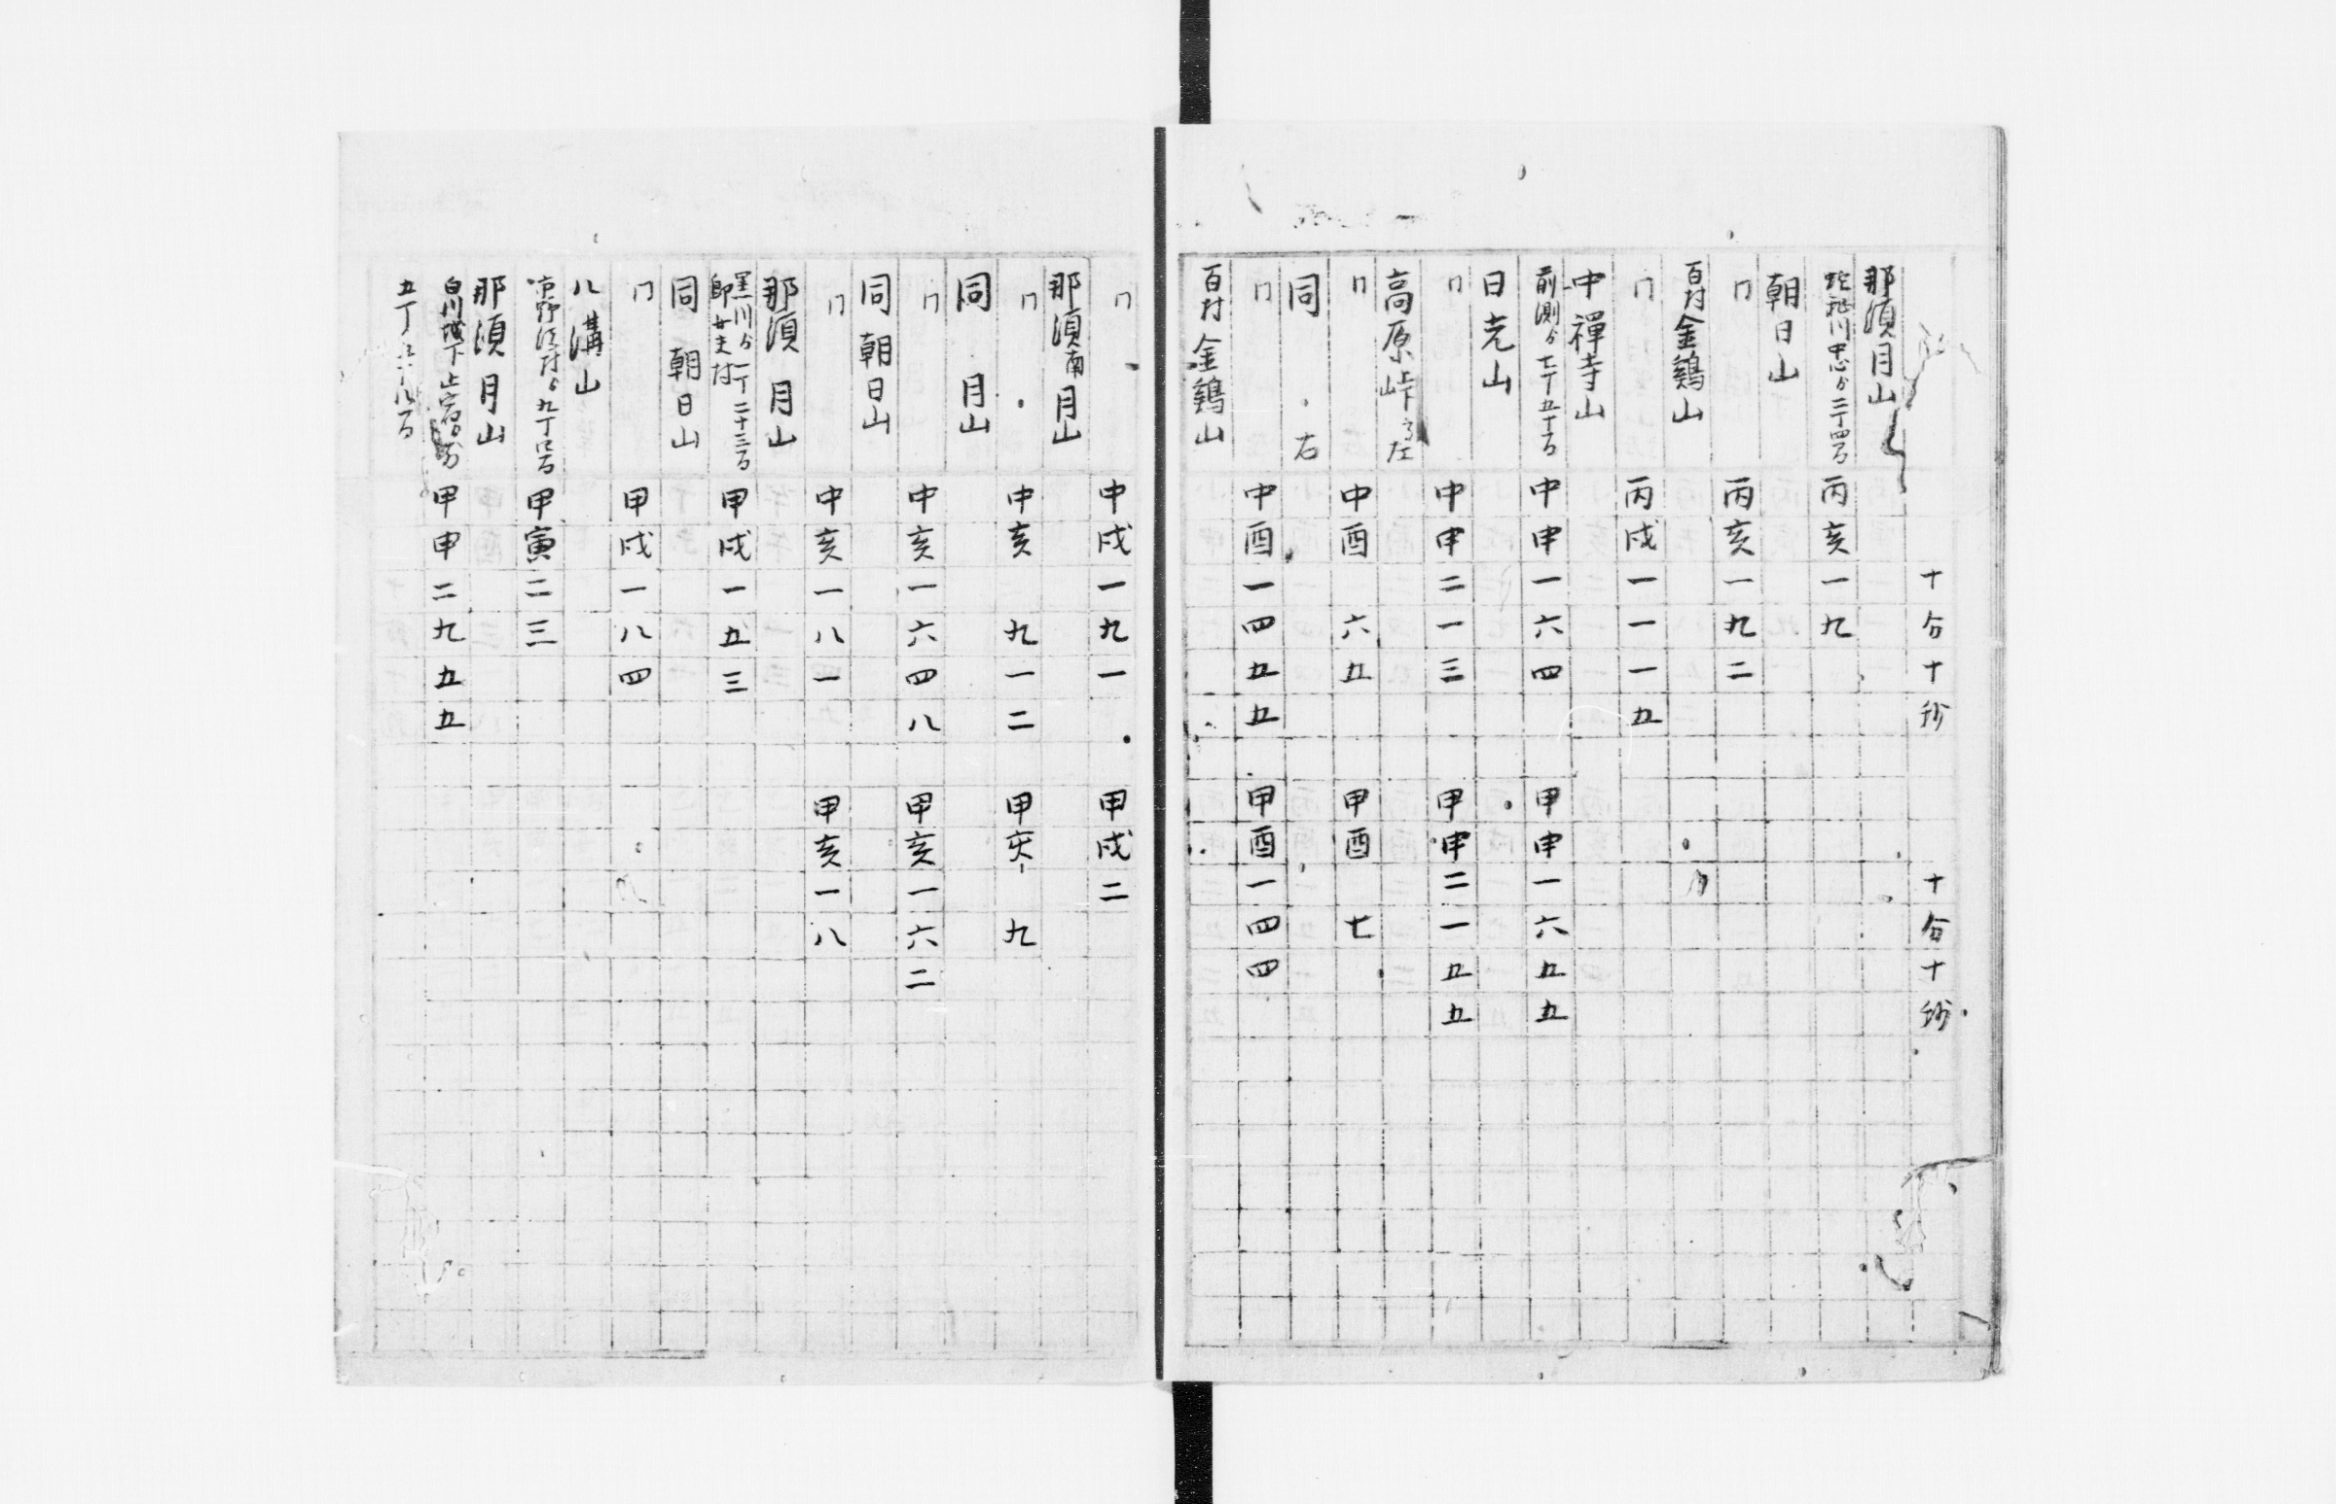 十分十秒 十分十秒
那須月山
蛇尾川中心ゟ二丁四百 丙亥一九
朝日山
〃 丙亥一九二
百村金鶏山
〃 丙戌一一一五
中禪寺山
前測ゟ七丁五十百 中申一六四 甲申一六五五
日光山
〃 中申二一三 甲申二一五五
高原峠 左
〃 中酉 六五 甲酉 七
同 右
〃 中酉一四五五 甲酉一四四
百村金鶏山
〃 中戌一九一 甲戌二
那須南月山
〃 中亥 九一二 甲亥 九
同 月山
〃 中亥一六四八 甲亥一六二
同朝日山
〃 中亥一八一 甲亥一八
那須月山
黒川ゟ一丁二十三百 甲戌一五三
同朝日山
〃 甲戌一八四
八溝山
村ゟ九丁 甲寅二三
那須月山
白川城下 甲申二九五五
五丁 八百